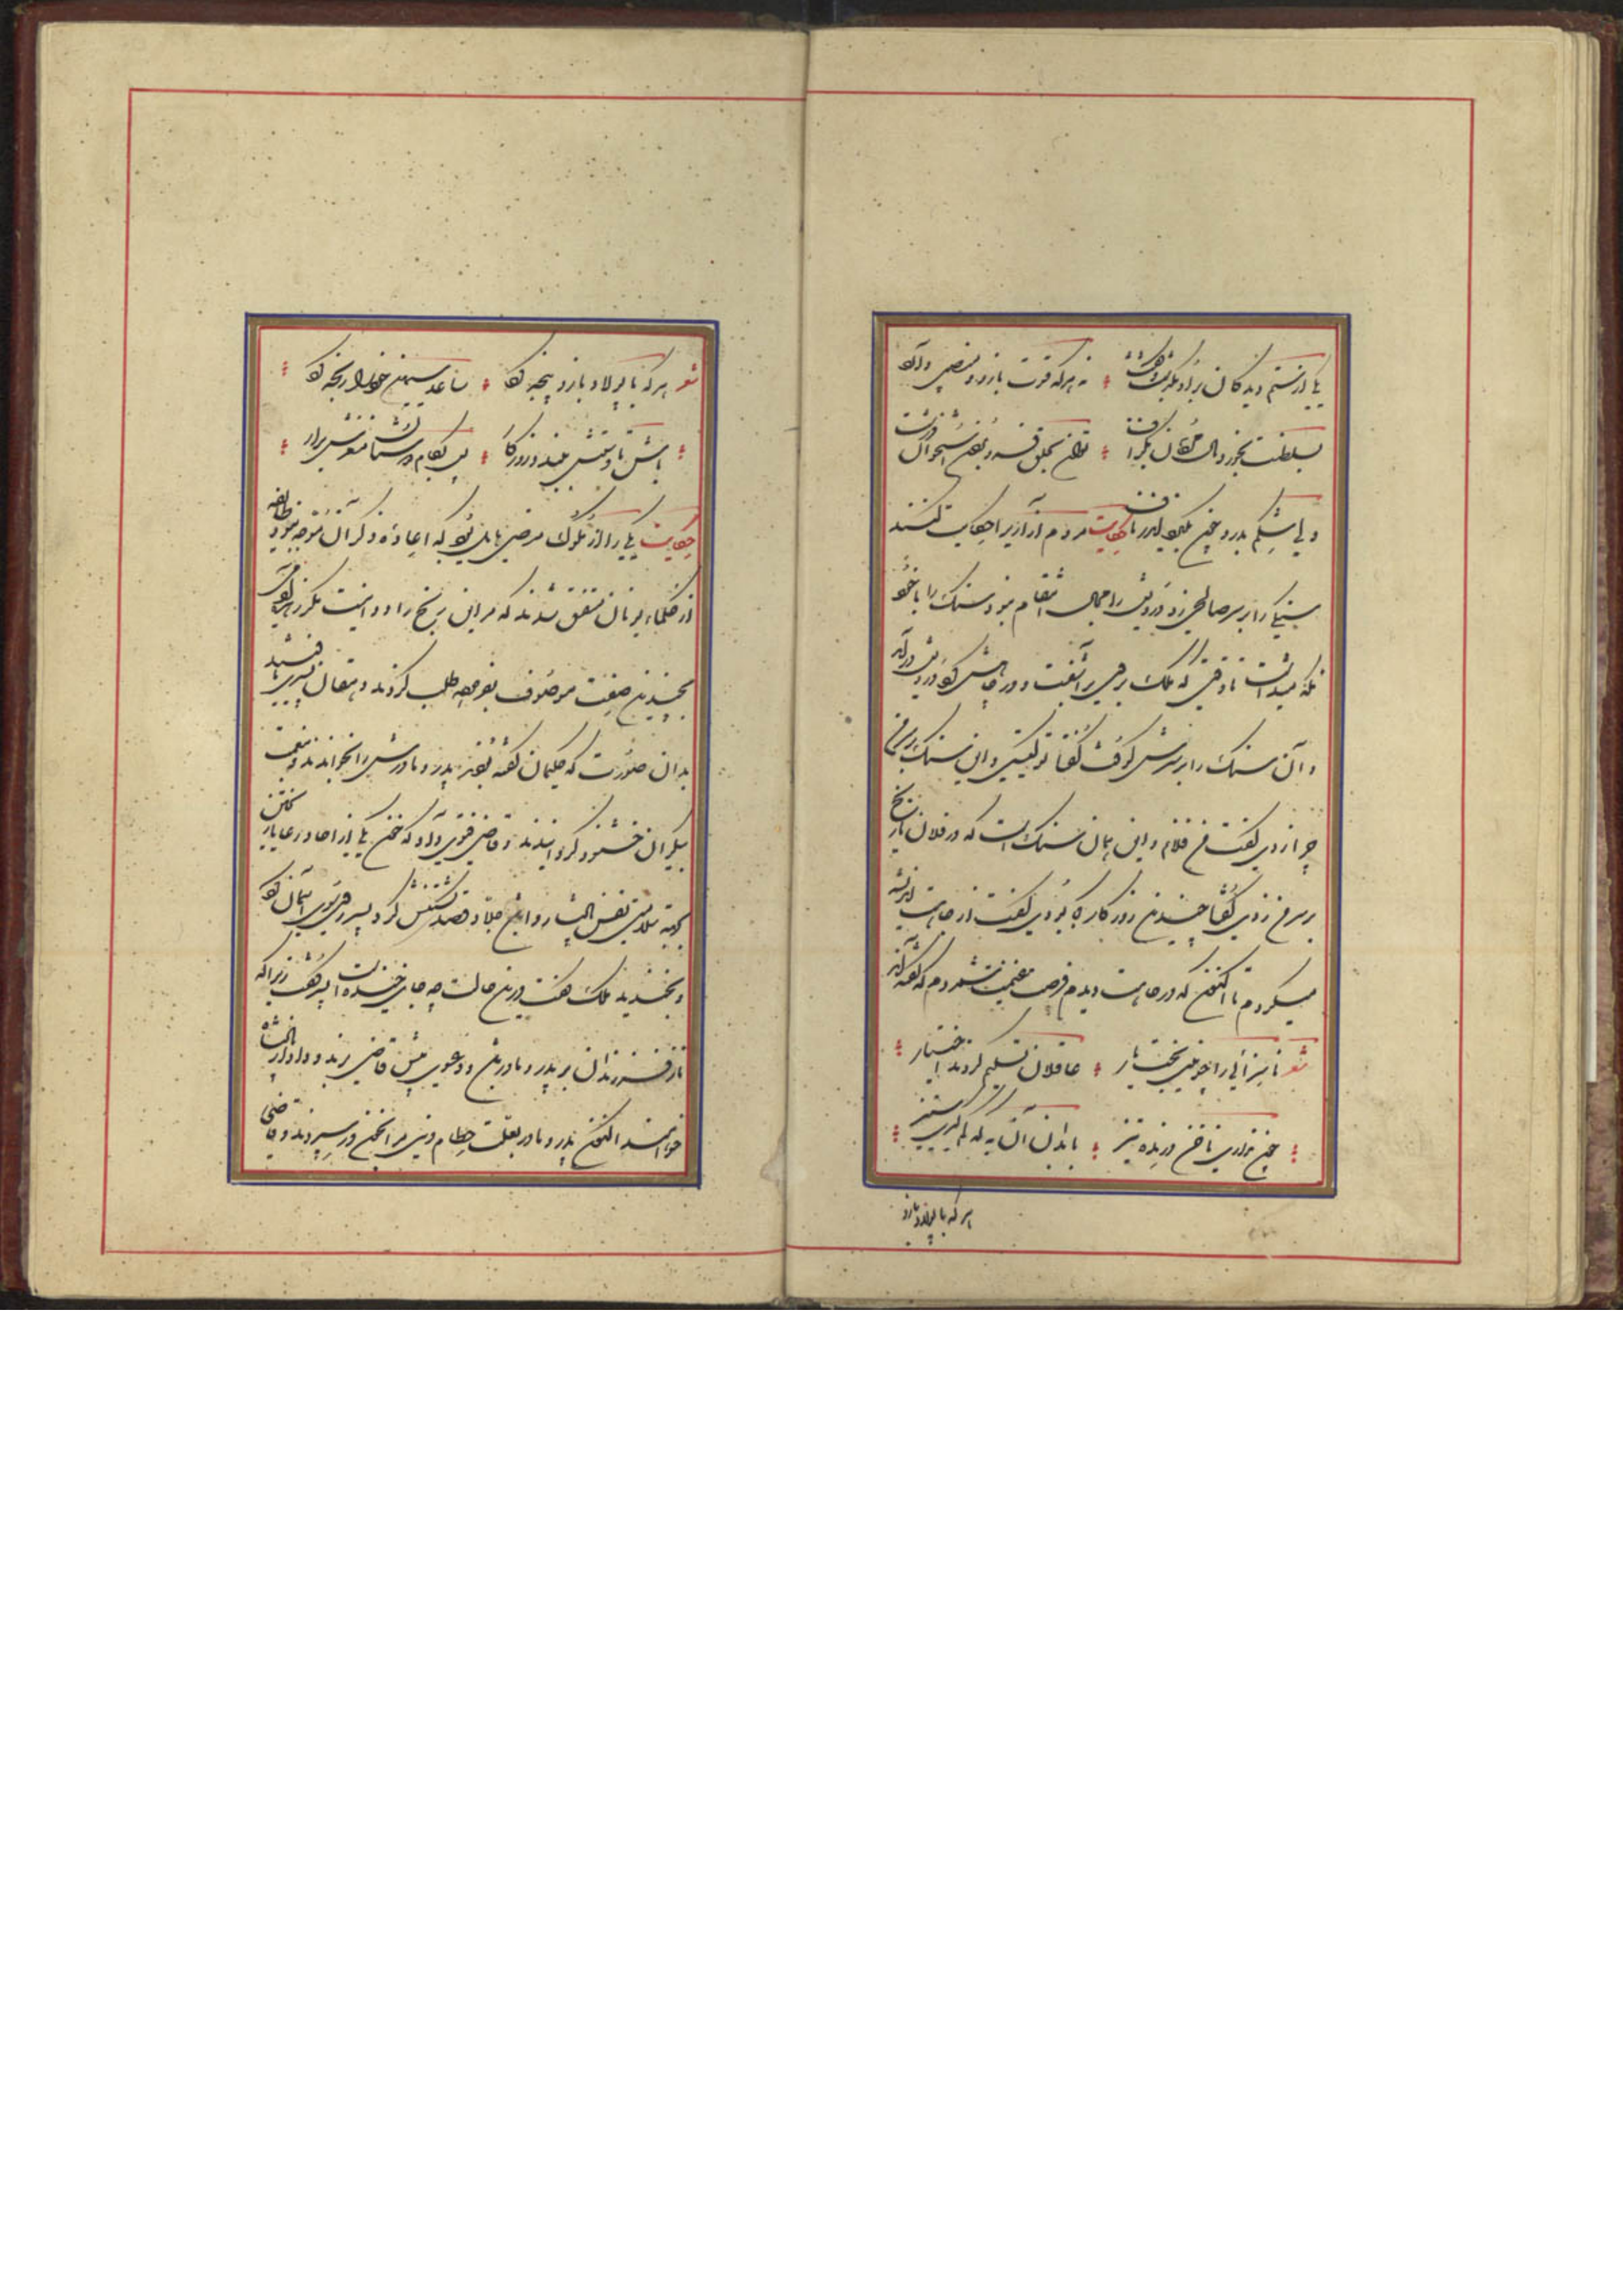 یکی از ستم دیدگان برو بگذشت و گفت نه هر که قوت بازو و منصبی دارد
بسلطنت بخورد مال مردمان بگزاف توان بحلق فرو بردن استخوان درشت
ولی شکم بدرد چون بگیرد اندر ناف حکایت مردم آزاریرا حکایت کنند
سنگی را بر سر صالحی زد درویش را مجال انتقام نبود سنگ را با خود
نگه میداشت تا وقتی که ملک بر وی برآشفت و در چاهش کرد درویش درآمد
و آن سنگ را بر سرش کوفت گفتا تو کیستی و این سنگ بر سر من
چرا زدی گفت من فلانم و این همان سنگ است که در فلان تاریخ
بر سر من زدی گفتا چندین روزگار کجا بودی گفت از جاهت اندیشه
میکردم تا اکنون که در چاهت دیدم فرصت غنیمت شمردم که گفته‌اند
شعر ناسزائی را چو بینی بختیار عاقلان تسلیم کردند اختیار
چون نداری ناخن درنده تیز با بدان آن به که کم گیری ستیز
هر که با پولاد بازو
شعر هر که با پولاد بازو پنجه کرد ساعد سیمین خود را رنجه کرد
باش تا دستش ببندد روزگار پس بکام دوستان مغزش برآر
حکایت یکی را از ملوک مرضی هایل بود که اعادهٔ ذکر آن موجه نبود طایفه
از حکماء یونان متفق شدند که مر این رنج را دوا نیست مگر زهرهٔ آدمی
بچندین صفت موصوف بفرمود طلب کردند دهقان پسری یافتند
بدان صورت که حکیمان گفته بودند پدر و مادرش را بخواندند و بنعمت
بیکران خشنود گردانیدند و قاضی فتوی داد که خون یکی از آحاد رعایا ریختن
بجهة سلامتی نفس پادشاه روا باشد جلاد قصد کشتنش کرد پسر روی بسوی آسمان کرد
و بخندید ملک گفت درین حالت چه جای خنده است پسر گفت زیرا که
ناز فرزندان بر پدر و مادر باشد و دعوی پیش قاضی برند و داد از پادشاه
خواهند اکنون پدر و مادر بعلت حطام دنیی مرا بخون در سپردند و قاضی